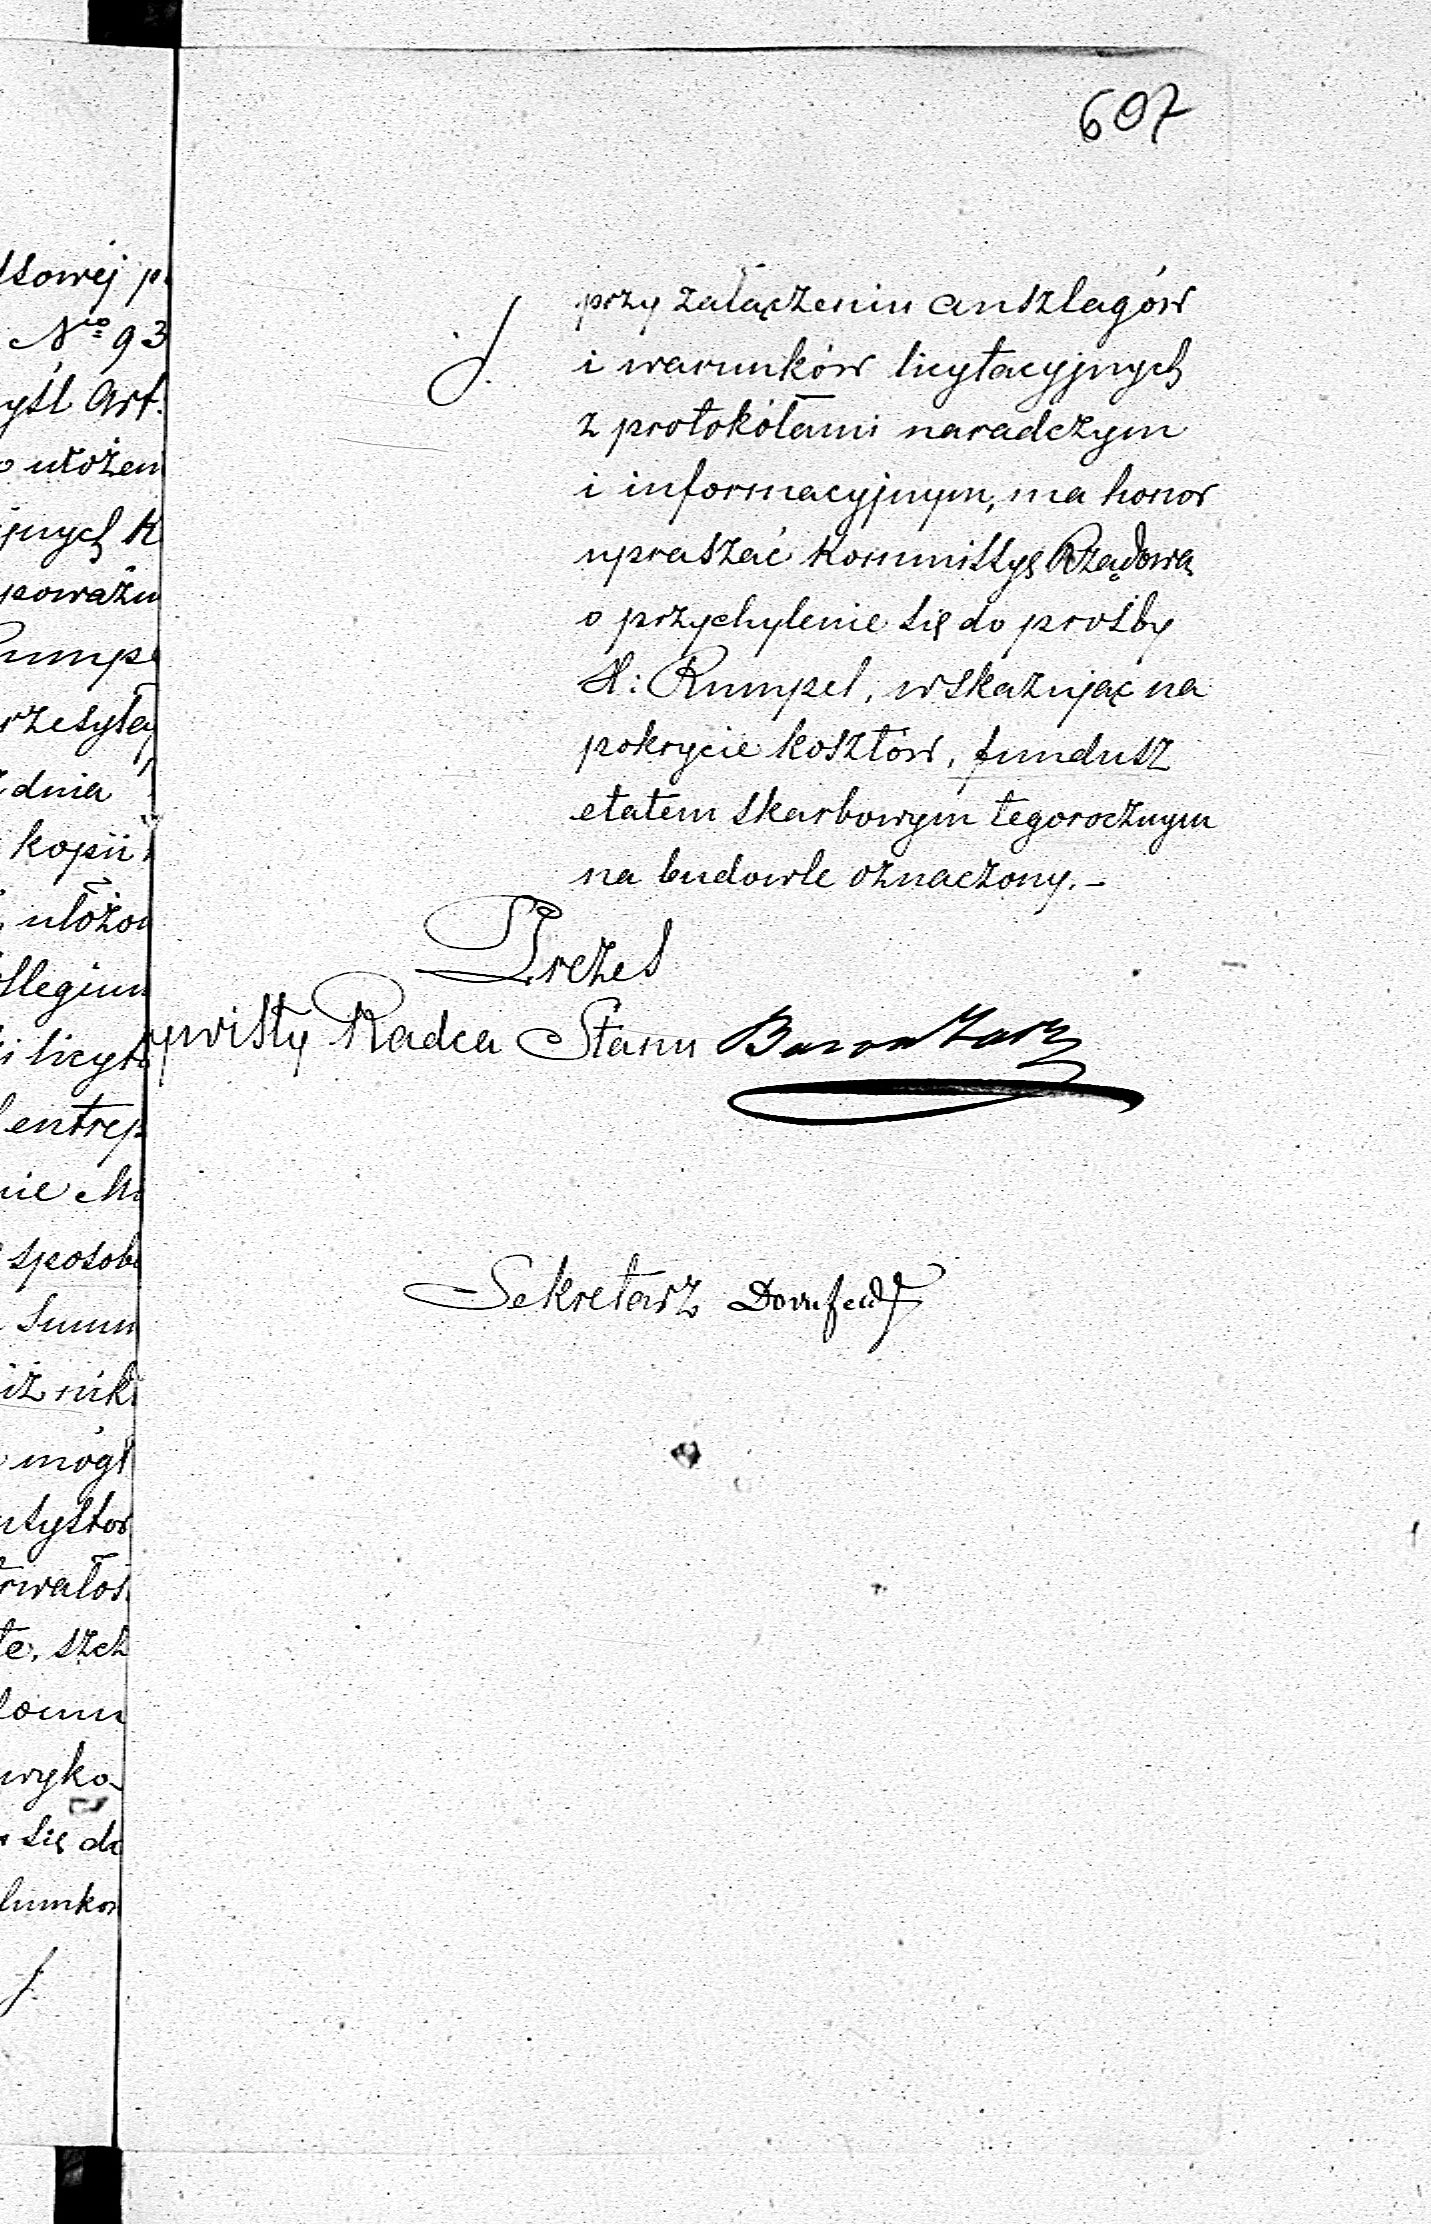 lsowej p
Nro 93
yśl Art.
o ułożen
jnych k
poważn
Rumpe
rzesyła
dnia
kopii
ułożon
llegium
i licyt
entrep
nie
sposob
Summ
iż nik
mógł
trwałoś
te, szcz
wyko
się do
607
przy załączeniu anszlagów
i warunków licytacyjnych
z protokółami naradczym
i informacyjnym, ma honor
upraszać Kommissyę Rządową
o przychylenie się do prośby
H: Rumpel, wskazując na
pokrycie kosztów, fundusz
etatem skarbowym tegorocznym
na budowle oznaczony. –
Prezes
ywisty Radca Stanu
Sekretarz